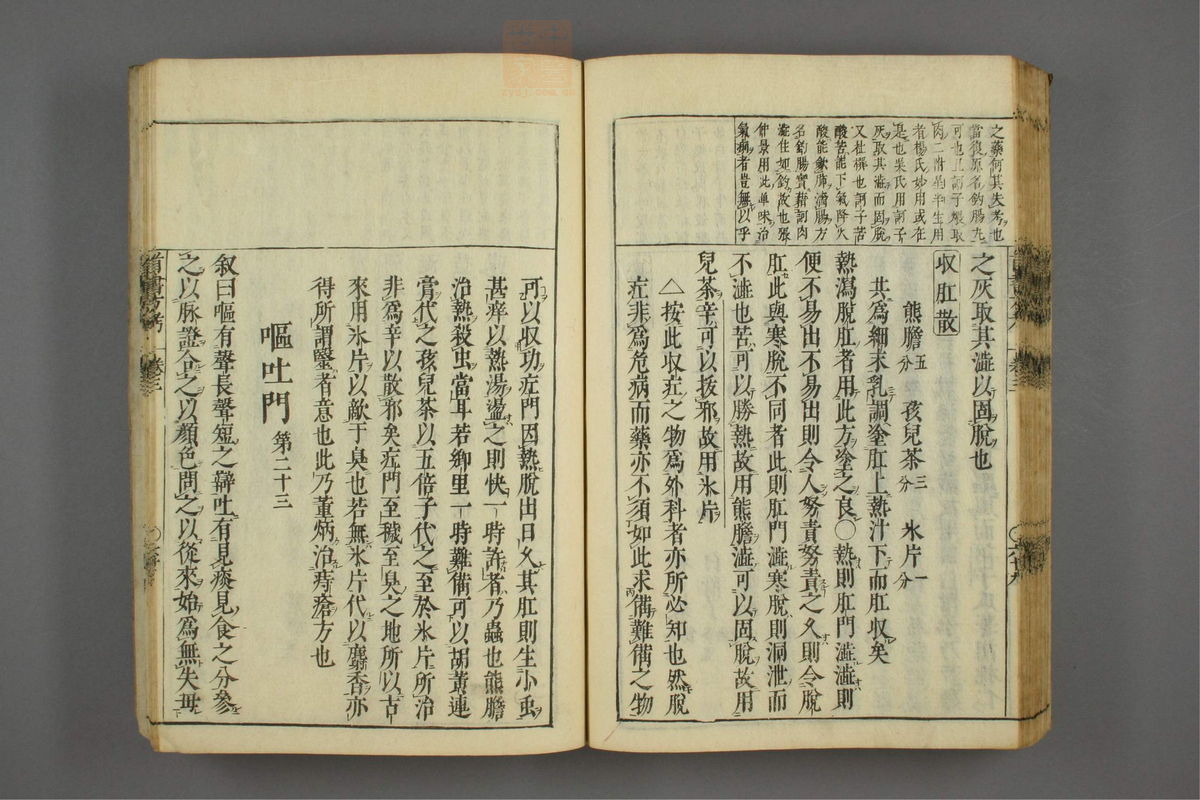 之藥何其失考也
當復原名鈎腸丸
可也且訶子煨取
肉二附皆半生用
者楊氏妙用或在
是也吳氏用訶子
灰取其澁而固脫
又杜撰也訶子苦
酸苦能下氣降火
酸能歛肺濇腸方
名鈎腸實藉訶肉
澁住如鈎故也張
仲景用此單味治
氣痢者豈無以乎
之灰取其澁以固脫也
収肛散
熊膽五分 孩兒茶三分 氷片一分
共爲細末乳調塗肛上熱汁下而肛収矣
熱瀉脫肛者用此方塗之良○熱則肛門澁澁則
便不易出不易出則令人努責努責之久則令脫
肛此與寒脫不同者此則肛門澁寒脫則洞泄而
不澁也苦可以勝熱故用熊膽澁可以固脫故用
兒茶辛可以拔邪故用氷片
△按此収疘之物爲外科者亦所必知也然脫
疘非爲危病而藥亦不須如此求備難備之物
可以収功疘門因熱脫出日久其肛則生小虫
甚痒以熱湯盪之則快一時許者乃蟲也熊膽
治熱殺虫當耳若鄉里一時難備可以胡黃連
膏代之孩兒茶以五倍子代之至於氷片所治
非爲辛以散邪矣疘門至穢至臭之地所以古
來用氷片以敵于臭也若無氷片代以麝香亦
得所謂醫者意也此乃董炳治痔瘡方也
嘔吐門 第二十三
叙曰嘔有聲長聲短之辯吐有見痰見食之分參
之以脉證合之以顏色問之以從來始爲無失毋